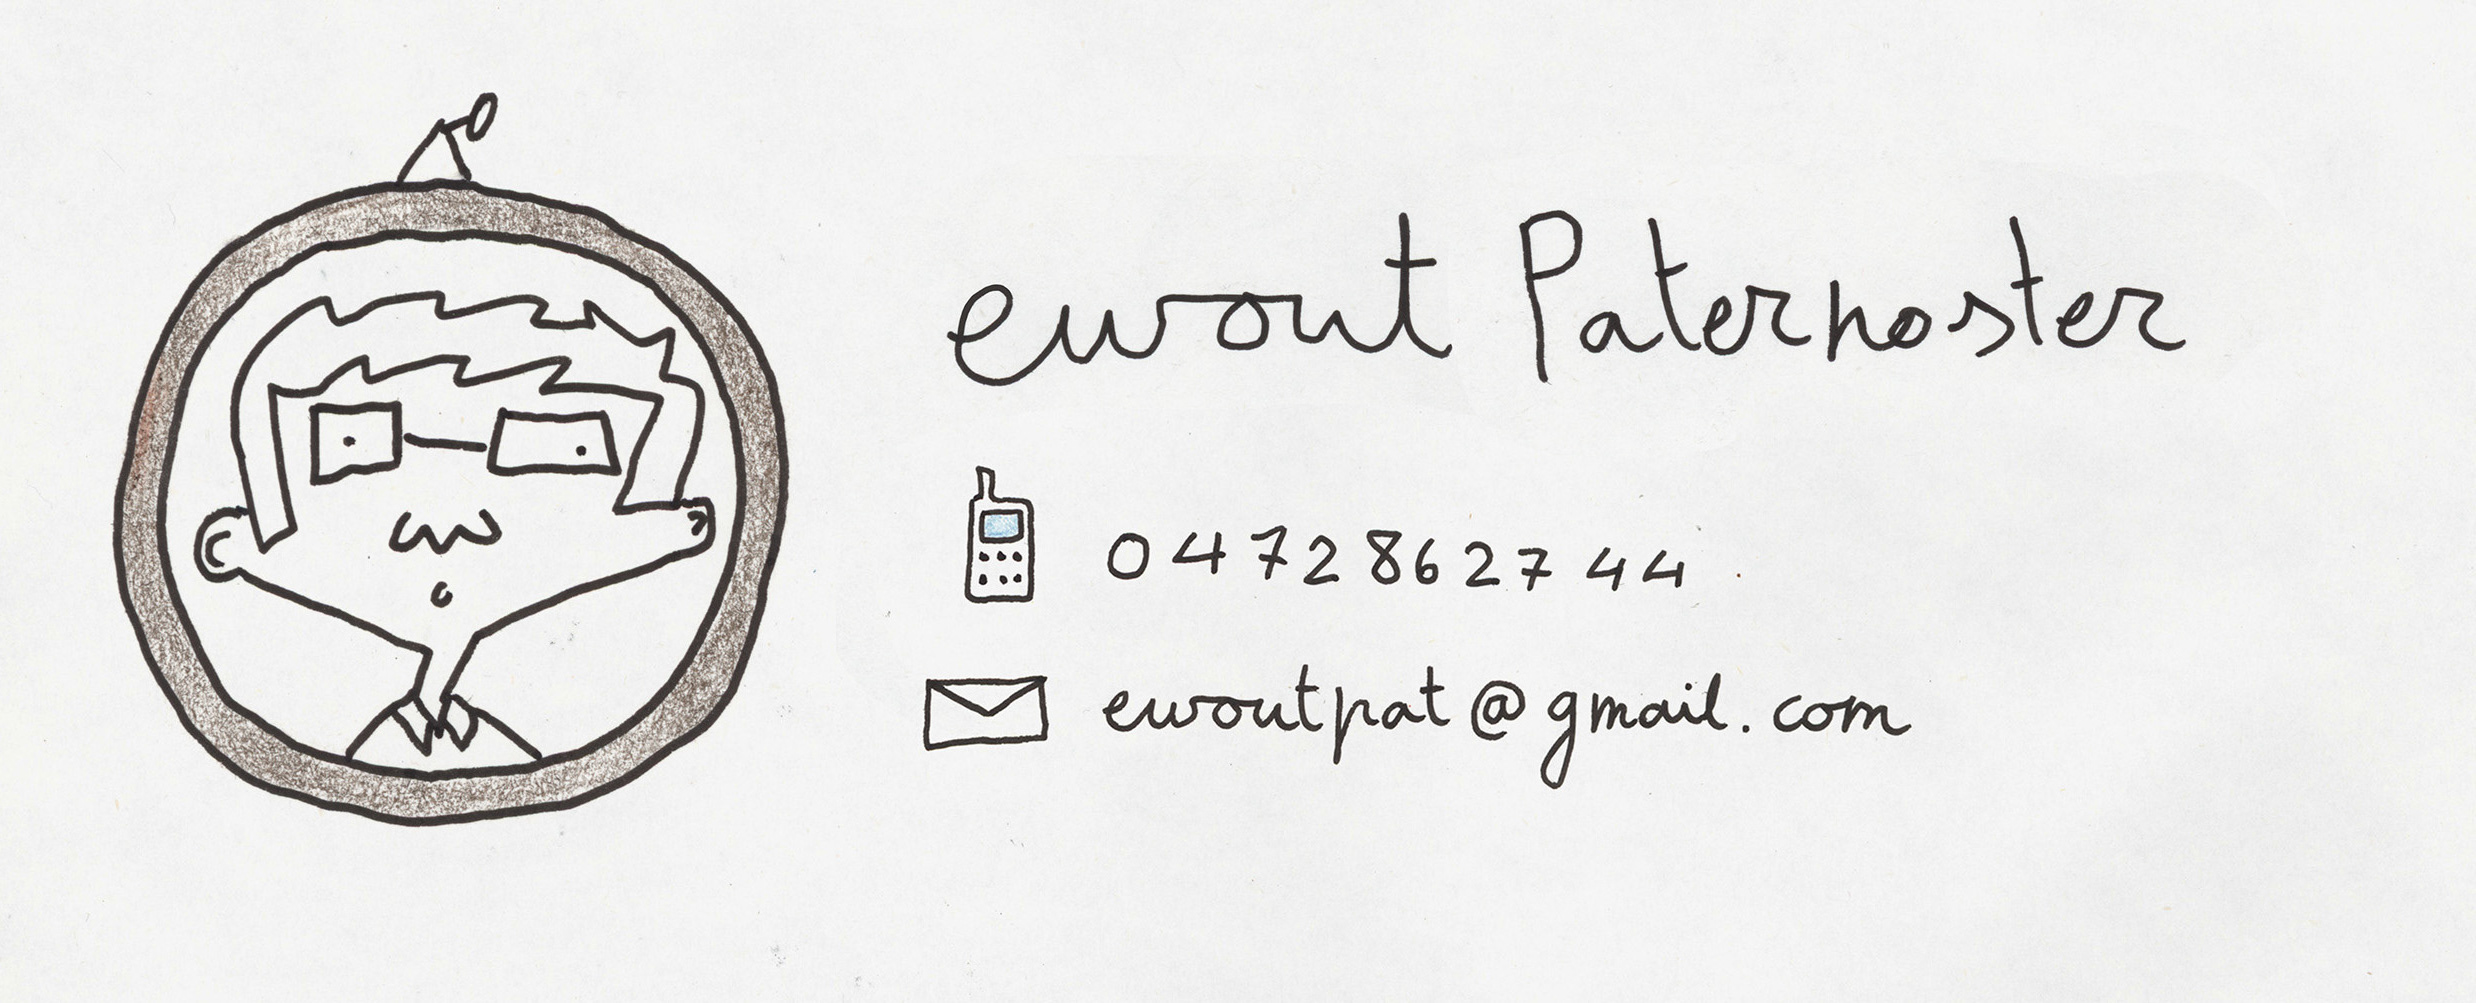 ewout Paternoster
0472862744
ewoutpat@gmail.com